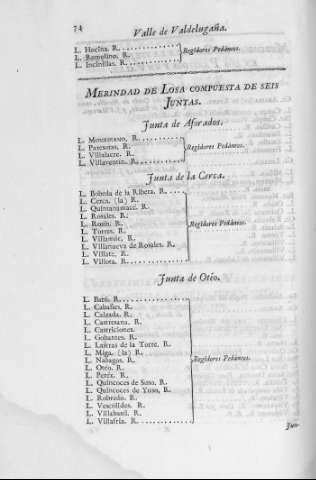 74
Valle de Valdelugaña.
L. Hocina. R.
L. Remolino. R.
L. Incinillas. R.
Regidores Pedáneos.
MERINDAD DE LOSA COMPUESTA DE SEIS
JUNTAS.
Junta de Aforados.
L. R.
L. Paresotas. R.
L. Villalacre. R.
L. Villaventin. R.
Regidores Pedáneos.
Junta de la Cerca.
L. Bóbeda de la Ribera. R.
L. Cerca. (la) R.
L. Quintanamacé. R.
L. Rosales. R.
L. Rosío. R.
L. Torres. R.
L. Villamór. R.
L. Villanueva de Rosales. R.
L. Villate. R.
L. Villota. R.
Regidores Pedáneos.
Junta de Otéo.
L. Barò. R.
L. Cabañes. R.
L. Calzada. R.
L. Castresana. R.
L. Castriciones.
L. Gobantes. R.
L. Lastras de la Torre. R.
L. Miga. (la) R.
L. Nabagos. R.
L. Otéo. R.
L. Peréx. R.
L. Quincoces de Suso. R.
L. Quincoces de Yuso. R.
L. Robredo. R.
L. Vescolides. R.
L. Villabasil. R.
L. Villafría. R.
Regidores Pedáneos.
Jun-